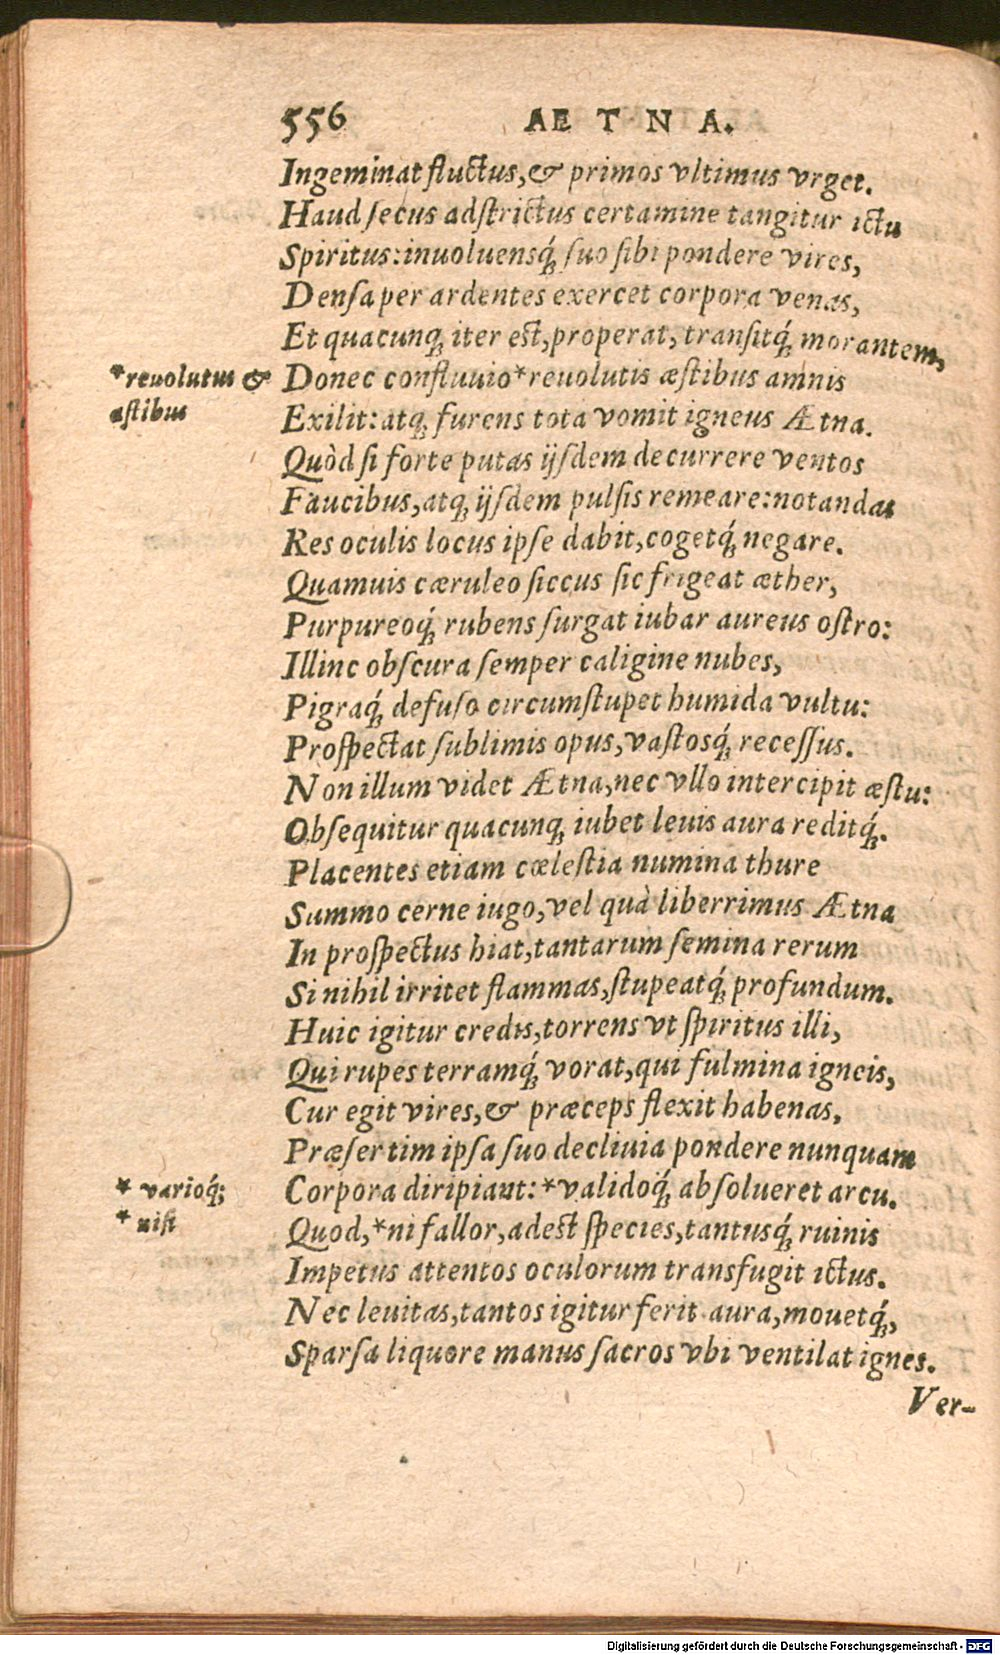 556 AETNA.
Ingeminat fluctus, & primos vltimus vrget.
Haud secus adstrictus certamine tangitur ictu
Spiritus: inuoluensq́; suo sibi pondere vires,
Densa per ardentes exercet corpora venas,
Et quacunq; iter est, properat, transitq́; morantem,
*reuolutus & Donec confluuio *reuolutis æstibus amnis
æstibus Exilit: atq; furens tota vomit igneus Ætna.
Quòd si forte putas ijsdem decurrere ventos
Faucibus, atq; ijsdem pulsis remeare: notandas
Res oculis locus ipse dabit, cogetq́; negare.
Quamuis cæruleo siccus sic frigeat æther,
Purpureoq́; rubens surgat iubar aureus ostro:
Illinc obscura semper caligine nubes,
Pigraq́; defuso circumstupet humida vultu:
Prospectat sublimis opus, vastosq́; recessus.
Non illum videt Ætna, nec vllo intercipit æstu:
Obsequitur quacunq; iubet leuis aura reditq́;.
Placentes etiam cælestia numina thure
Summo cerne iugo, vel quà liberrimus Ætna
In prospectus hiat, tantarum semina rerum
Si nihil irritet flammas, stupeatq́; profundum.
Huic igitur credis, torrens vt spiritus illi,
Qui rupes terramq́; vorat, qui fulmina igneis,
Cur egit vires, & præceps flexit habenas,
Præsertim ipsa suo decliuia pondere nunquam
* varioq́; Corpora diripiant: *validoq́; absolueret arcu.
* nisi Quod, *ni fallor, adest species, tantusq́; ruinis
Impetus attentos oculorum transfugit ictus.
Nec leuitas, tantos igitur ferit aura, mouetq́;,
Sparsa liquore manus sacros vbi ventilat ignes.
Ver-
Digitalisierung gefördert durch die Deutsche Forschungsgemeinschaft - DFG